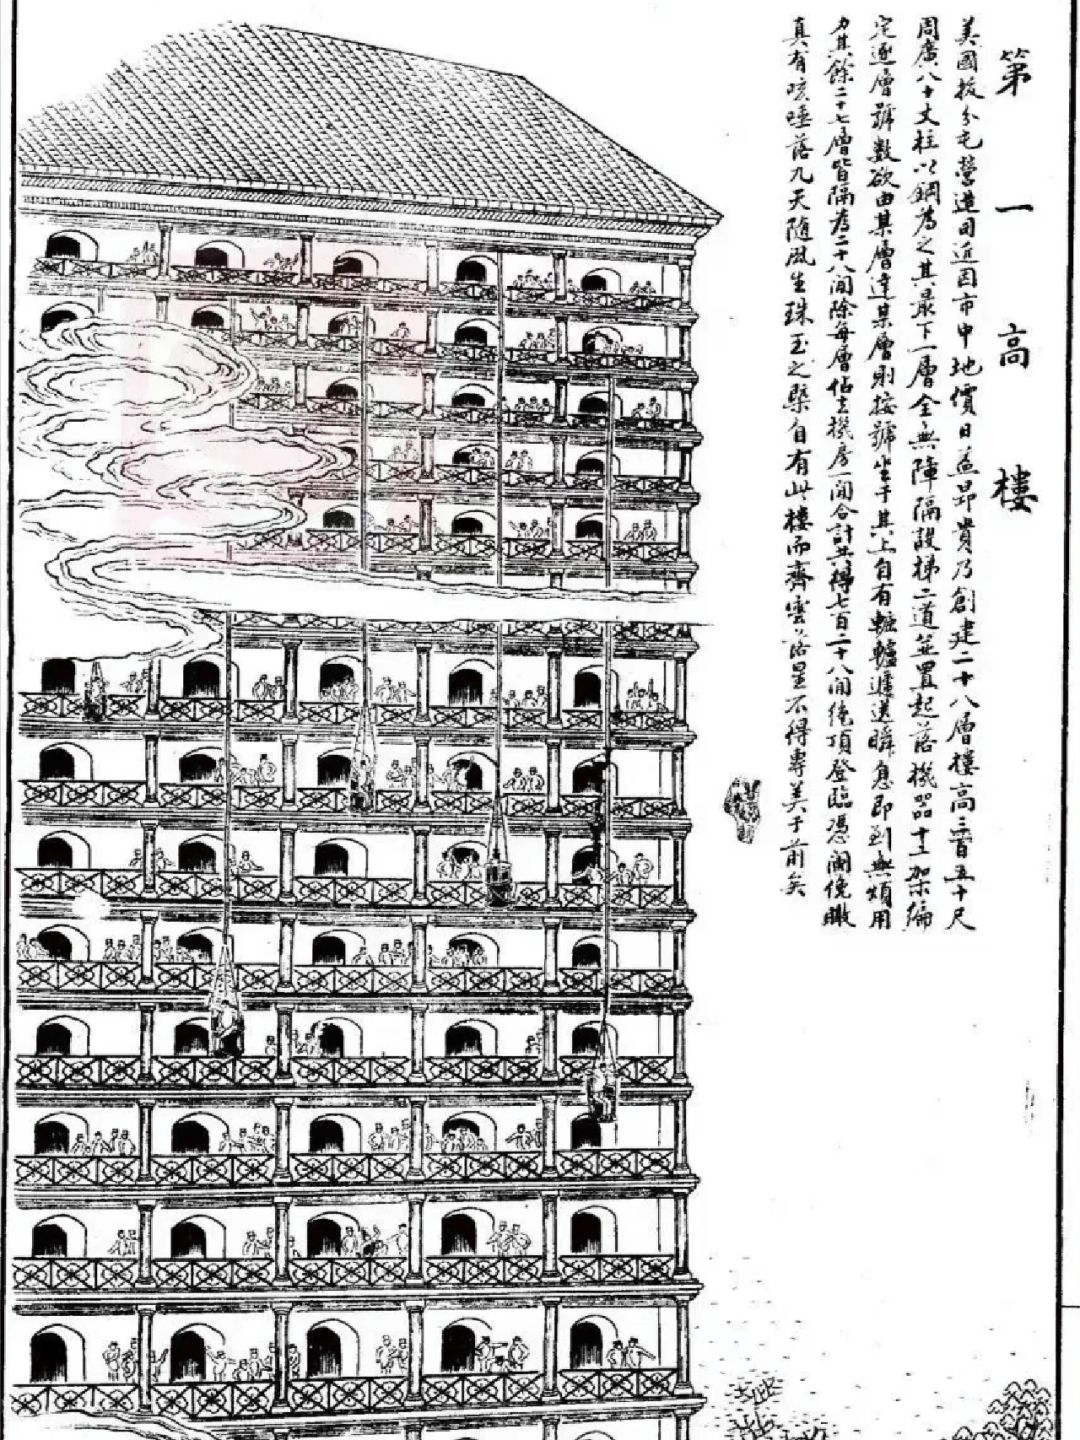 第一高樓
美國分屯營造司近因市中地價日益昂貴乃創建二十八層樓高三百五十尺
周廣八十丈柱以鋼為之其最下一層全無障隔設梯二道並置起落機器十二架編
定逐層號數欲由某層達某層則按號坐于其上自有轆轤遞送瞬息即到無煩用
力其餘二十七層皆隔為二十八間除每層佔去機房間合計共得七百二十八間絕頂登臨憑闌俛瞰
真有咳唾落九天隨風生珠玉之槩自有此樓而齊雲落星不得專美于前矣